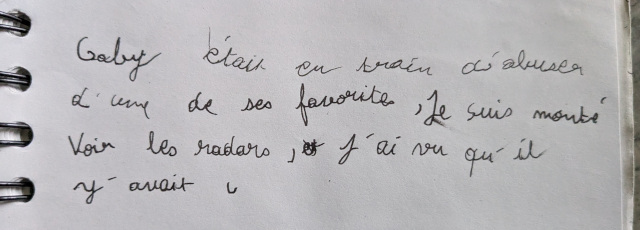 Gaby était en train d'abuser
d'une de ses favorites, Je suis monté
Voir les radars, et J'ai vu qu'il
y'avait